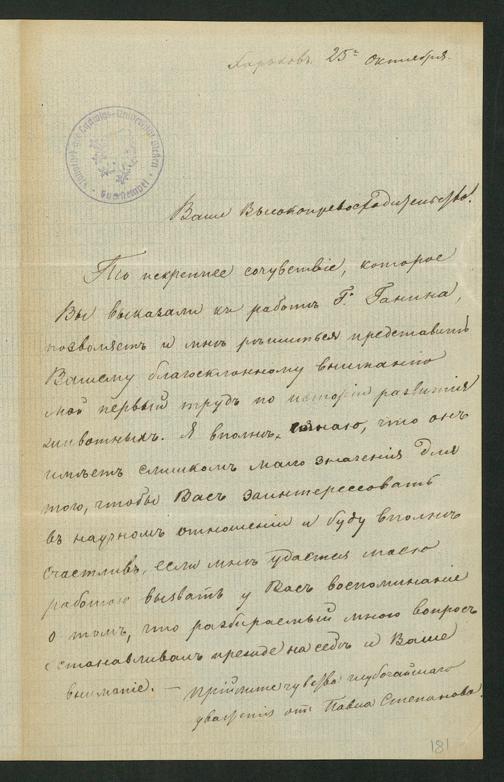 Харьковъ 25го Октября.
Ваше Высокопревосходительство!
То искреннее сочувствіе, которое
Вы выказали къ работѣ Г. Ганина,
позволяетъ и мнѣ рѣшиться представить
Вашему благосклонному вниманію
мой первый трудъ по исторіи развитія
животныхъ. Я вполнѣ знаю, что онъ
имѣетъ слишкомъ мало значенія для
того, чтобы Васъ заинтерессовать
въ научномъ отношеніи и буду вполнѣ
счастливъ, если мнѣ удастся моею
работою вызвать у Васъ воспоминаніе
о томъ, что разбираемый мною вопросъ
останавливалъ прежде на себѣ и Ваше
вниманіе. — Примите чувства глубочайшаго
уваженія отъ Павла Степанова.
181